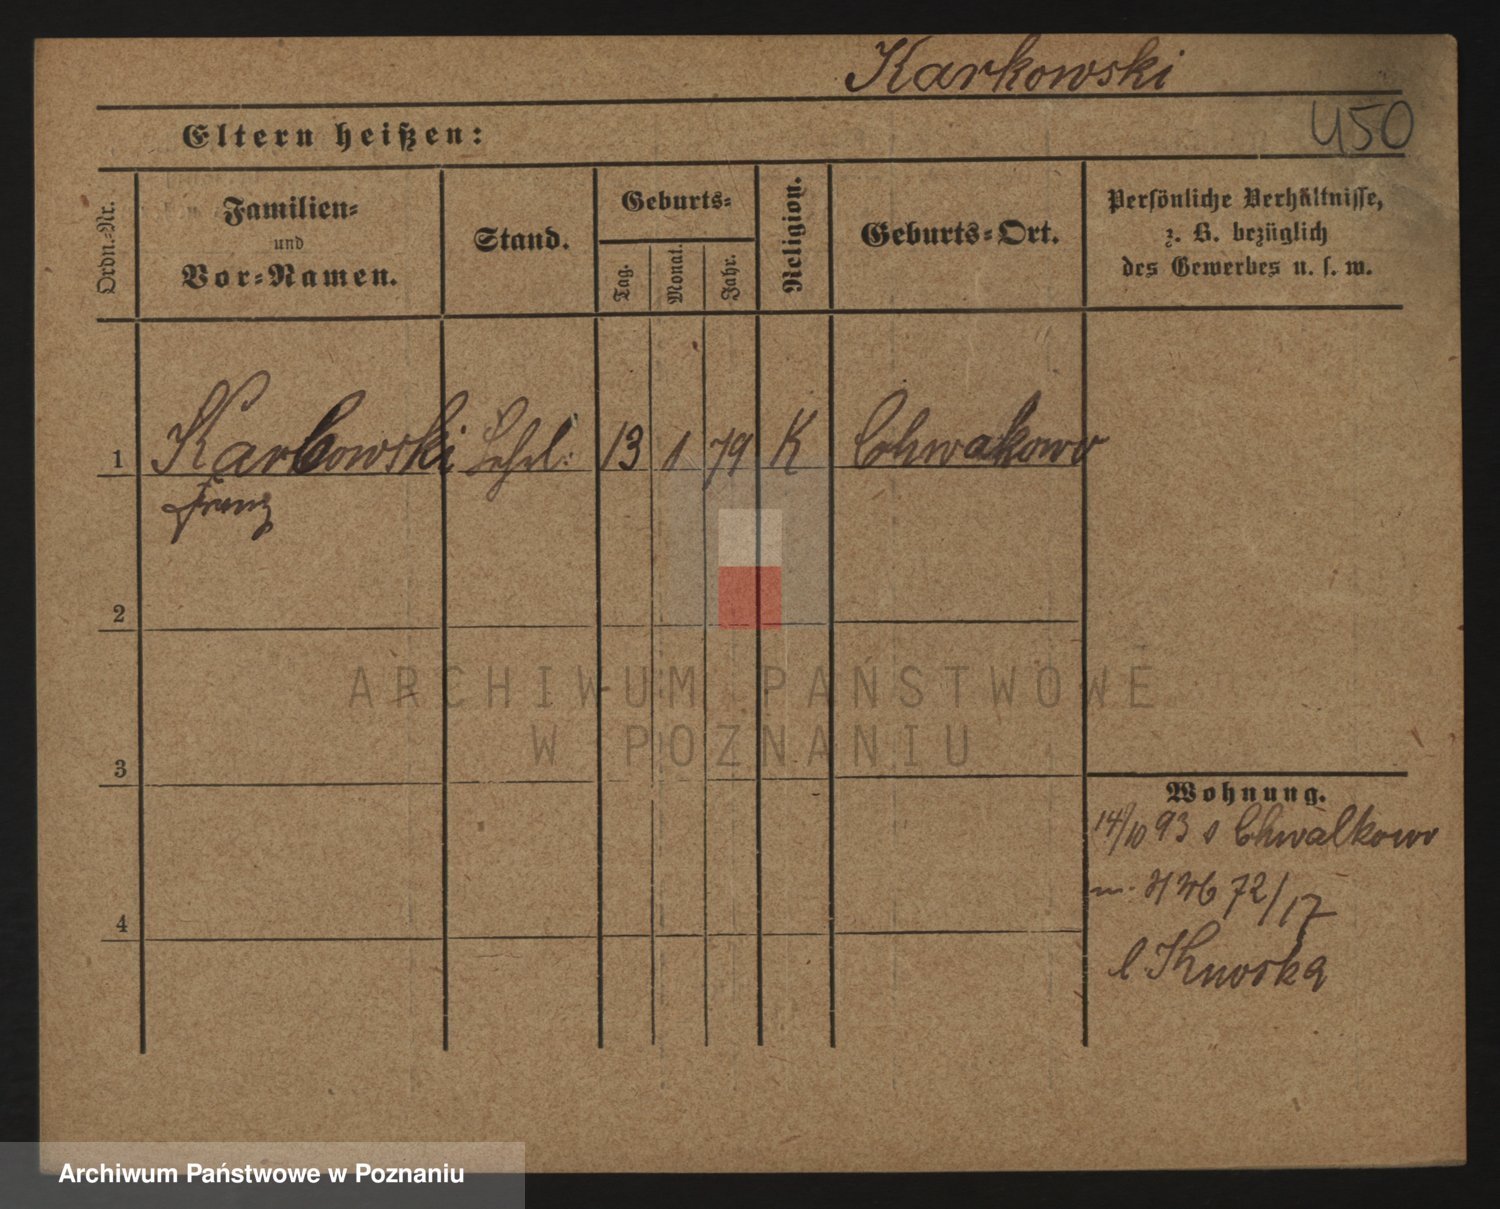 Karkowski
450
Eltern heißen:
Ordn.-Nr.
Familien-
und
Vor-Namen.
Stand.
Geburts-
Tag.
Monat.
Jahr.
Religion.
Geburts-Ort.
Persönliche Verhältnisse,
z. B. bezüglich
des Gewerbes u. s. w.
1 Karkowski 13 1 79 K Chwakowo
Franz
2
3
4
Wohnung.
14/10 93 Chwalkowo
72/17
ARCHIWUM PAŃSTWOWE
W POZNANIU
Archiwum Państwowe w Poznaniu